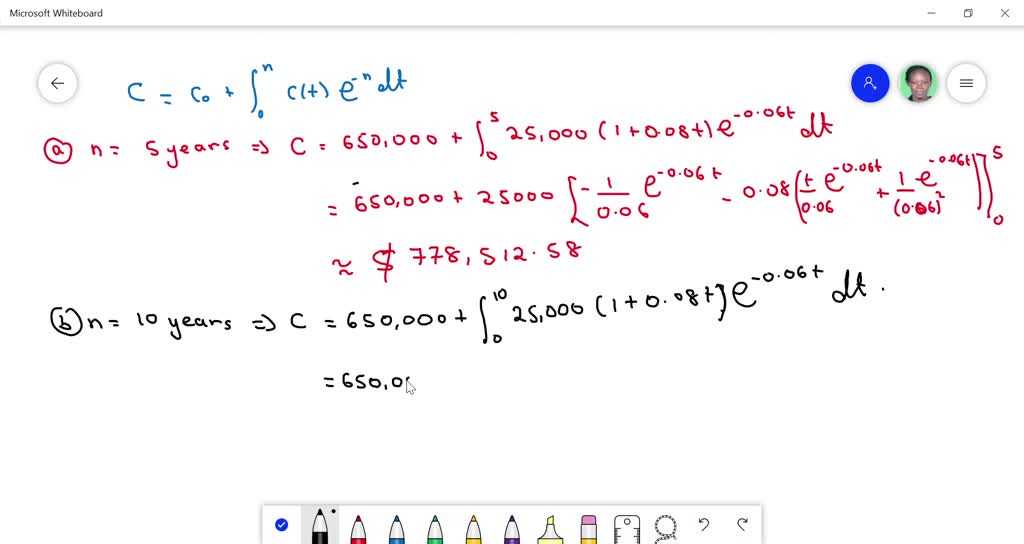 Microsoft Whiteboard
C = C₀ + ∫₀ⁿ c(t) e⁻ⁿ dt
(a) n = 5 years => C = 650,000 + ∫₀⁵ 25,000 (1+0.08t) e^(-0.06t) dt
= 650,000 + 25000 [-1/0.06 e^(-0.06t) - 0.08(t/0.06 e^(-0.06t) + 1/(0.06)² e^(-0.06t))]₀⁵
≈ $ 778,512.58
(b) n = 10 years => C = 650,000 + ∫₀¹⁰ 25,000 (1+0.08t) e^(-0.06t) dt.
= 650,00